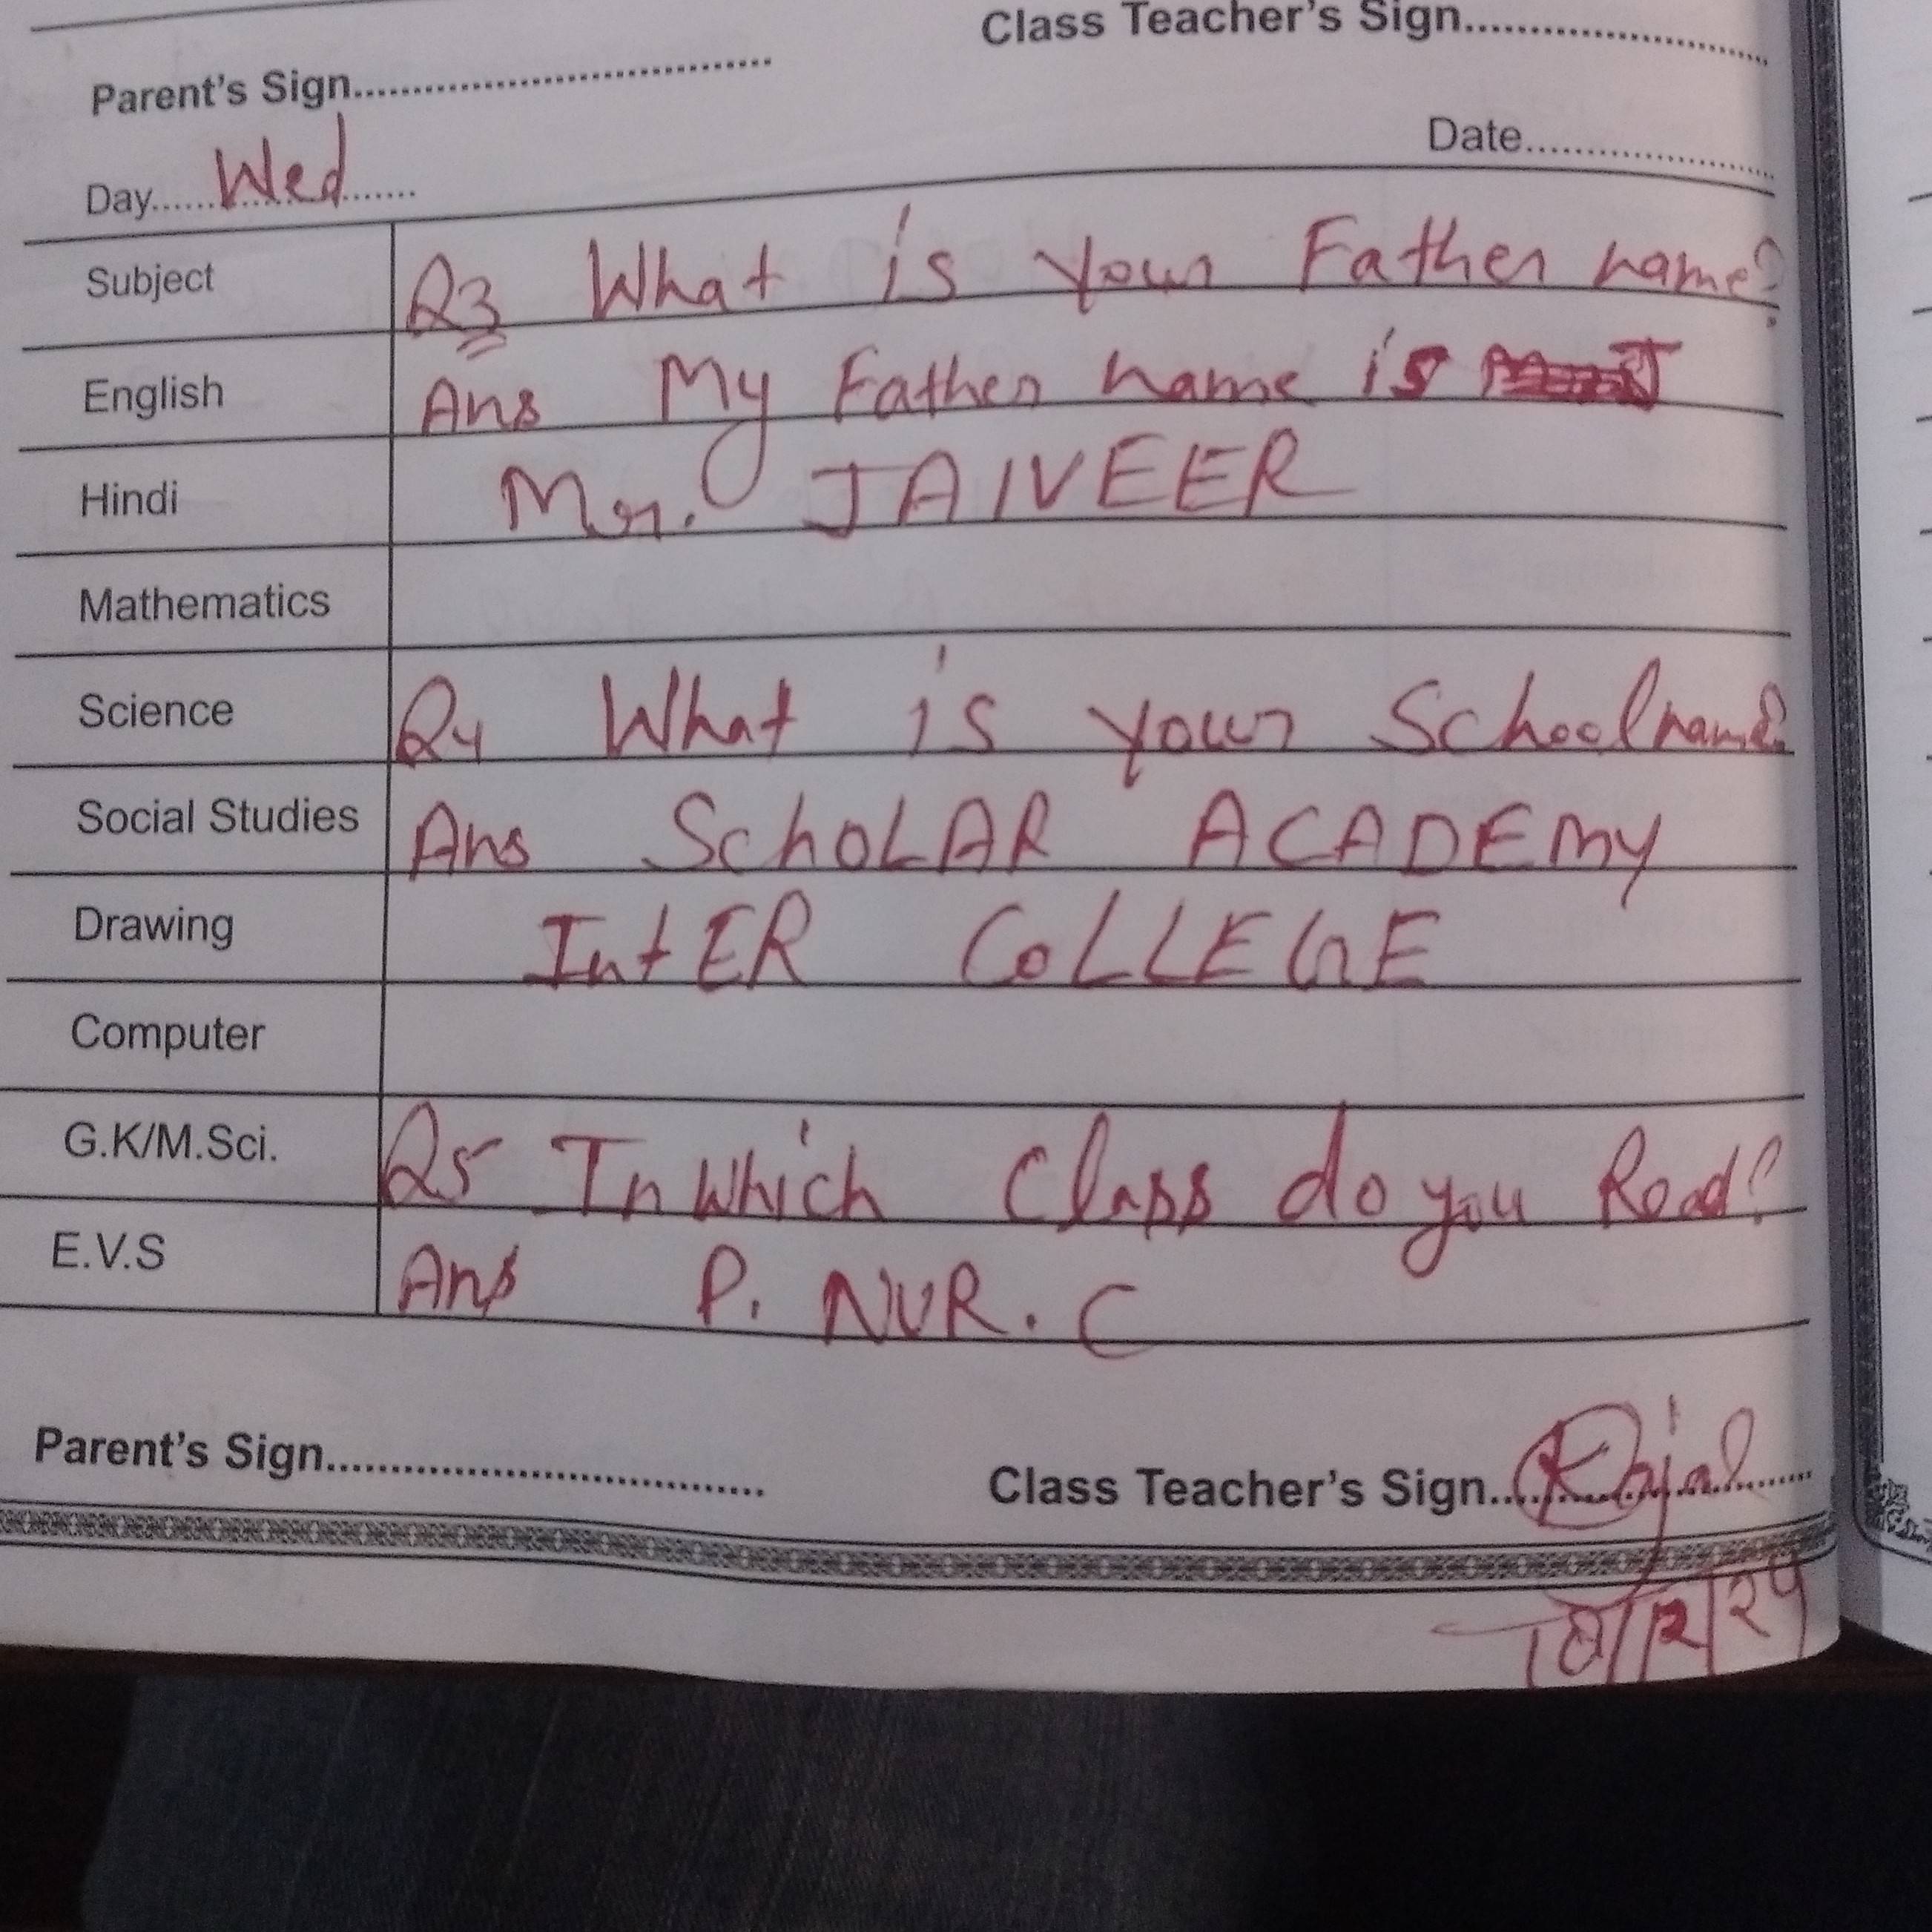 Class Teacher's Sign
Parent's Sign
Date
Day Wed
Subject Q3 What is your Father name?
English Ans My Father name is
Hindi Mr. JAIVEER
Mathematics
Science Q4 What is your School name?
Social Studies Ans SchOLAR ACADEMY
Drawing IntER CoLLEGE
Computer
G.K/M.Sci. Q5 In Which Class do you Read?
E.V.S Ans P. NUR. C
Parent's Sign
Class Teacher's Sign Kajal